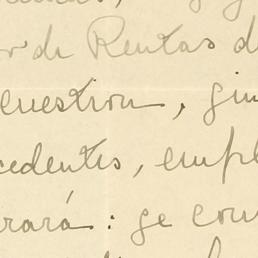 or de Rentas d
cuestion, gim
cedentes, empl
rará: se con